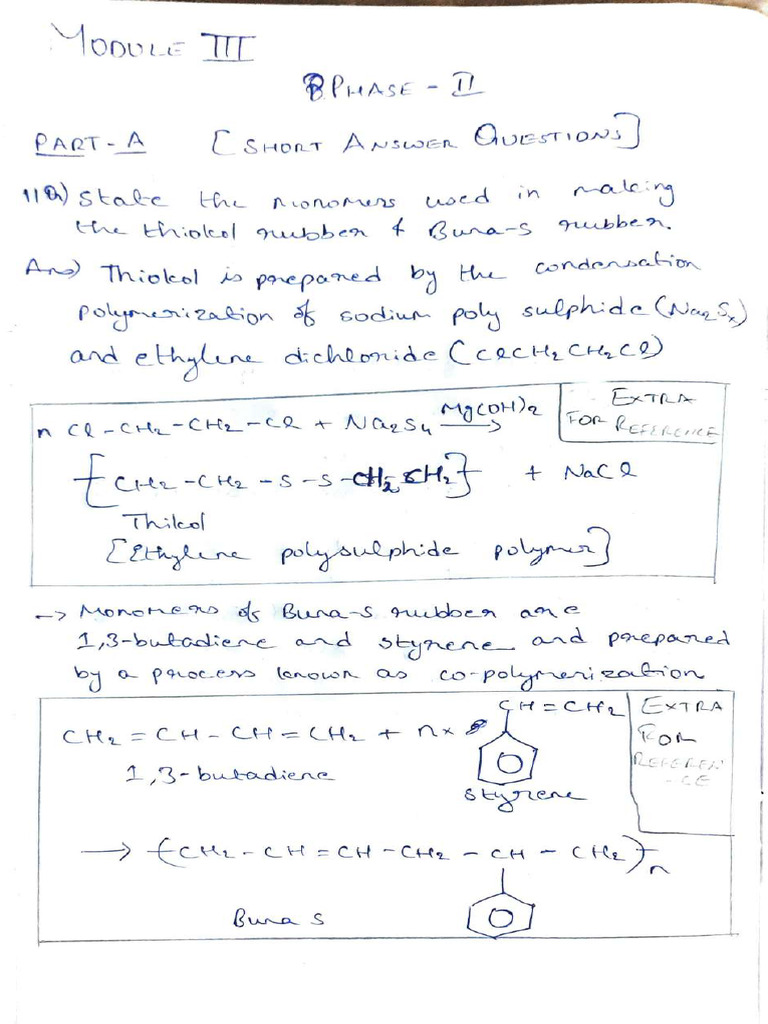 MODULE III
PHASE - II
PART-A [SHORT ANSWER QUESTIONS]
11Q) State the monomers used in making
the thiokol rubber & Buna-S rubber.
Ans) Thiokol is prepared by the condensation
polymerization of sodium poly sulphide (Na2Sx)
and ethylene dichloride (ClCH2CH2Cl)
EXTRA
FOR REFERENCE
n Cl-CH2-CH2-Cl + Na2S4 Mg(OH)2 →
{CH2-CH2-S-S-CH2CH2} + NaCl
Thikol
[Ethylene polysulphide polymer]
→ Monomers of Buna-S rubber are
1,3-butadiene and styrene and prepared
by a process known as co-polymerization
CH=CH2
EXTRA
FOR
REFEREN
-CE
CH2=CH-CH=CH2 + nx
1,3-butadiene
styrene
→ {CH2-CH=CH-CH2-CH-CH2}n
Buna S